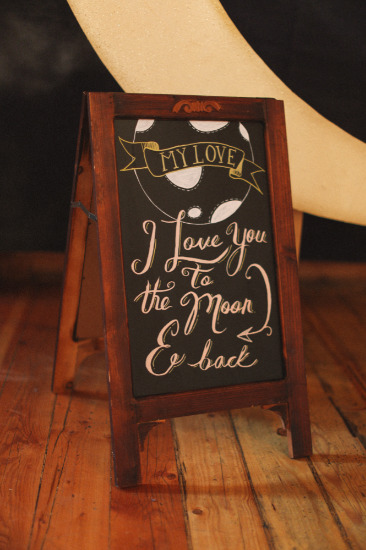 MY LOVE
I Love You
To
the Moon
& back